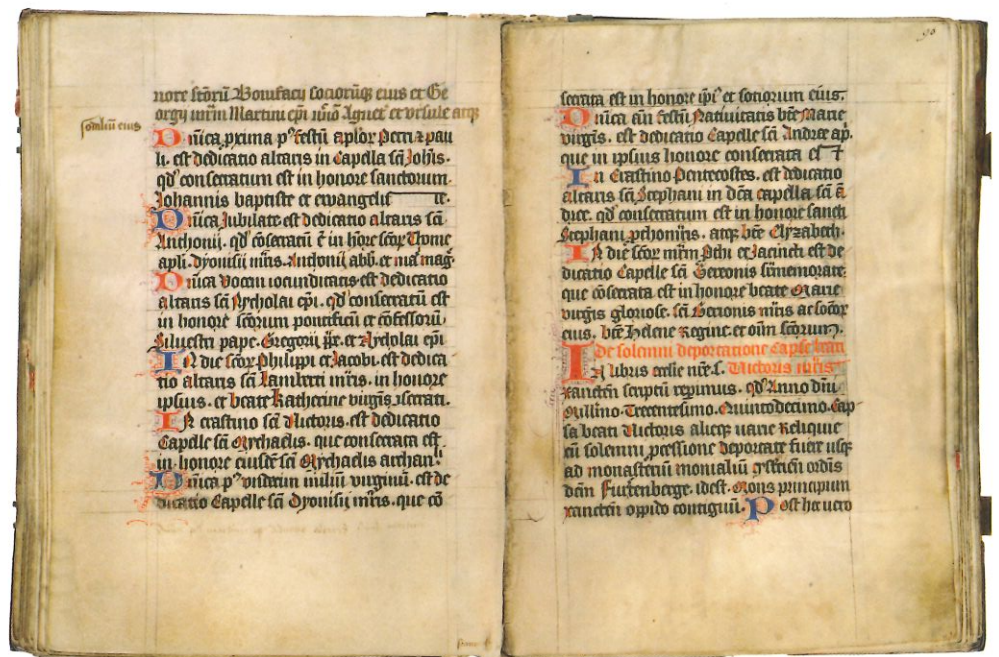 nore scōrū Bonifacij sociorūq̄ eius et Ge
orgij mr̄m Martini ep̄i Agnet̄ et vrsule atq̄
sodaliū eius
Dn̄ica prima p⁹ festū aplor Petri ⁊ pau
li. est dedicatio altaris in Capella sc̄i Joh̄is.
qd̄ consecratum est in honore sanctorum.
Johannis baptiste et ewangelist te.
Dn̄ica Jubilate est dedicatio altaris sc̄i
Anthonij. qd̄ cōsecratū ē in ho̅re sc̄oꝝ Thome
apli. dyonisij mr̄is. Anthonij abb̄. et mag̅.
Dn̄ica Vocem iocunditatis est dedicatio
altaris sc̄i Nycholai ep̄i. qd̄ consecratū est
in honore scōrum pontificū et cōfessorū.
Siluestri pape. Gregorij p̄p̄e. et Nycholai ep̄i
In die sc̄oꝝ Philippi et Jacobi. est dedica
tio altaris sc̄i Lamberti mr̄is. in honore
ipsius. et beate Katherine virgīs ↄsecrati.
In crastino sc̄i Victoris. est dedicatio
Capelle sc̄i Mychaelis. que consecrata est.
in honore eiusdē sc̄i Mychaelis archan
Dn̄ica p⁹ vndecim miliū virginū. est de
dicatio Capelle sc̄i Dyonisij mr̄is. que cō
96
secrata est in honore ip̄i⁹ et sociorum eius.
Dn̄ica an̄ festū Natiuitatis bt̄e Marie
virgīs. est dedicatio Capelle sc̄i Andree ap̄.
que in ipsius honore consecrata est
In Crastino Pentecostes. est dedicatio
altaris sc̄i Stephani in dc̄a capella sc̄i ā
dree. qd̄ consecratum est in honore sancti
Stephani ꝓthom̄ris. atq̄ bt̄e Elyzabeth.
In die sc̄oꝝ mr̄m Pthi et Jacincti est de
dicatio Capelle sc̄i Gereonis
que cōsecrata est in honore beate Marie
virgīs gloriose. sc̄i Gerionis mr̄is ac socioꝝ
eius. bt̄e Helene Regine. et oīm scōrum.
De solemni deportatione Capse beati
Ex libris eccl̄ie nr̄e s. Victoris mr̄is
xancteñ scriptū reperimus. qd̄ Anno dn̄i
Millīno. Trecentesimo. Quintodecimo. Cap
sa beati Victoris alieq̄ varie Reliquie
cū solemni ꝓcessione deportate fuerūt usq̄
ad monasteriū monialiū cysterciēn ordīs
dc̄m Furstenberge. idest. Mons principum
xancteñ oppido contiguū. Post hec vero